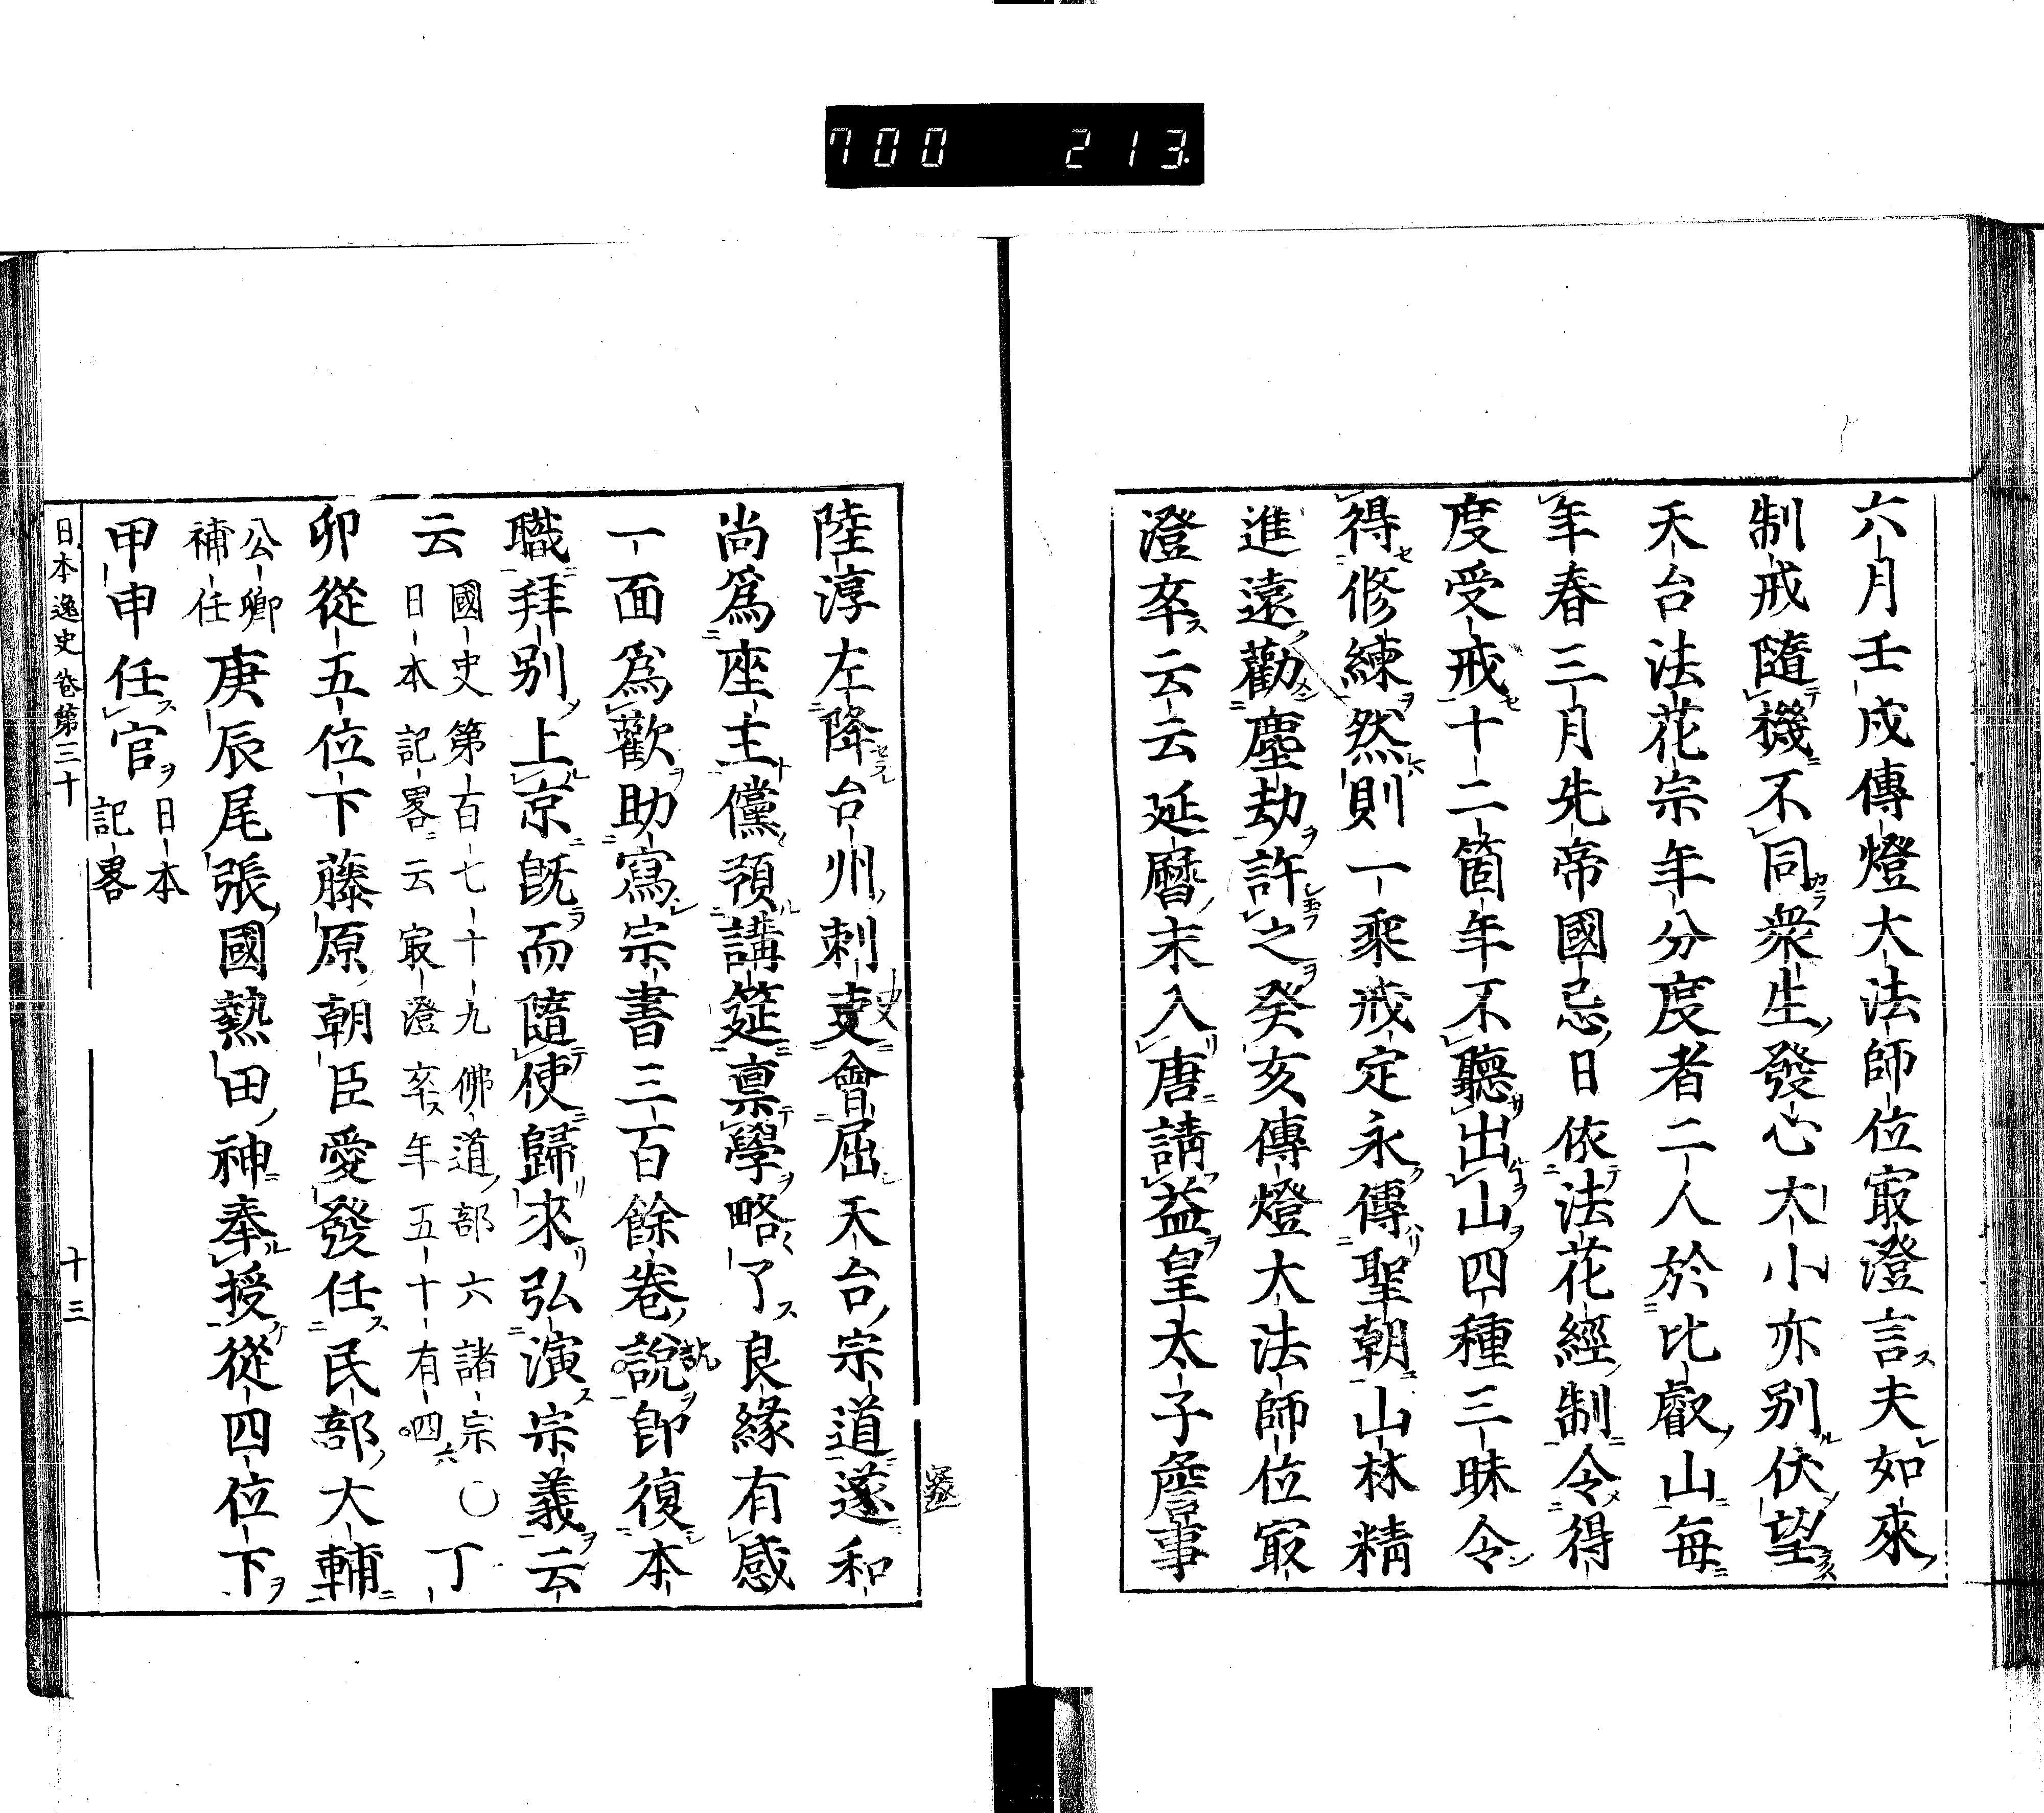 700 213
六月壬戌傳燈大法師位㝡澄言夫如來
制戒隨機不同衆生發心大小亦別伏望
天台法花宗年分度者二人於比叡山每
年春三月先帝國忌日依法花經制令得
度受戒十二箇年不聽出山四種三昧令
得修練然則一乘戒定永傳聖朝山林精
進遠勸塵劫許之癸亥傳燈大法師位㝡
澄卒云云延曆末入唐請益皇太子詹事
陸淳左降台州刺吏會屈天台宗道邃和
史
尚爲座主儻預講筵禀學略了良緣有感
一面爲歡助寫宗書三百餘卷說即復本
職拜別上京旣而隨使歸來弘演宗義云
云
國史第百七十九佛道部六諸宗
日本記畧云㝡澄卒年五十有四
六
○丁
卯從五位下藤原朝臣愛發任民部大輔
公卿
補任
庚辰尾張國熱田神奉授從四位下
甲申任官
日本
記畧
日本逸史卷第三十
十三